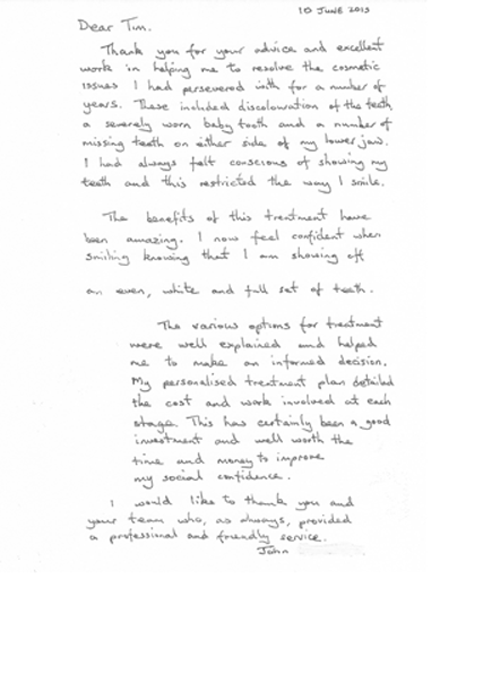 10 JUNE 2013
Dear Tim.
Thank you for your advice and excellent
work in helping me to resolve the cosmetic
issues I had persevered with for a number of
years. These included discolouration of the teeth,
a severely worn baby tooth and a number of
missing teeth on either side of my lower jaw.
I had always felt conscious of showing my
teeth and this restricted the way I smile.
The benefits of this treatment have
been amazing. I now feel confident when
smiling knowing that I am showing off
an even, white and full set of teeth.
The various options for treatment
were well explained and helped
me to make an informed decision.
My personalised treatment plan detailed
the cost and work involved at each
stage. This has certainly been a good
investment and well worth the
time and money to improve
my social confidence.
I would like to thank you and
your team who, as always, provided
a professional and friendly service.
John